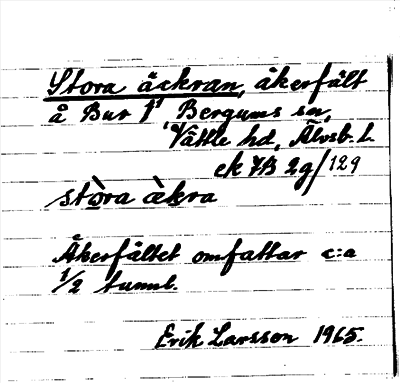 Stora äckran, åkerfält
å Bur 1¹ Bergums sn,
Vättle hd, Älvsb. l.
ek 7B 2g/129
stòra àkra
Åkerfältet omfattar c:a
1/2 tunnl.
Erik Larsson 1965.